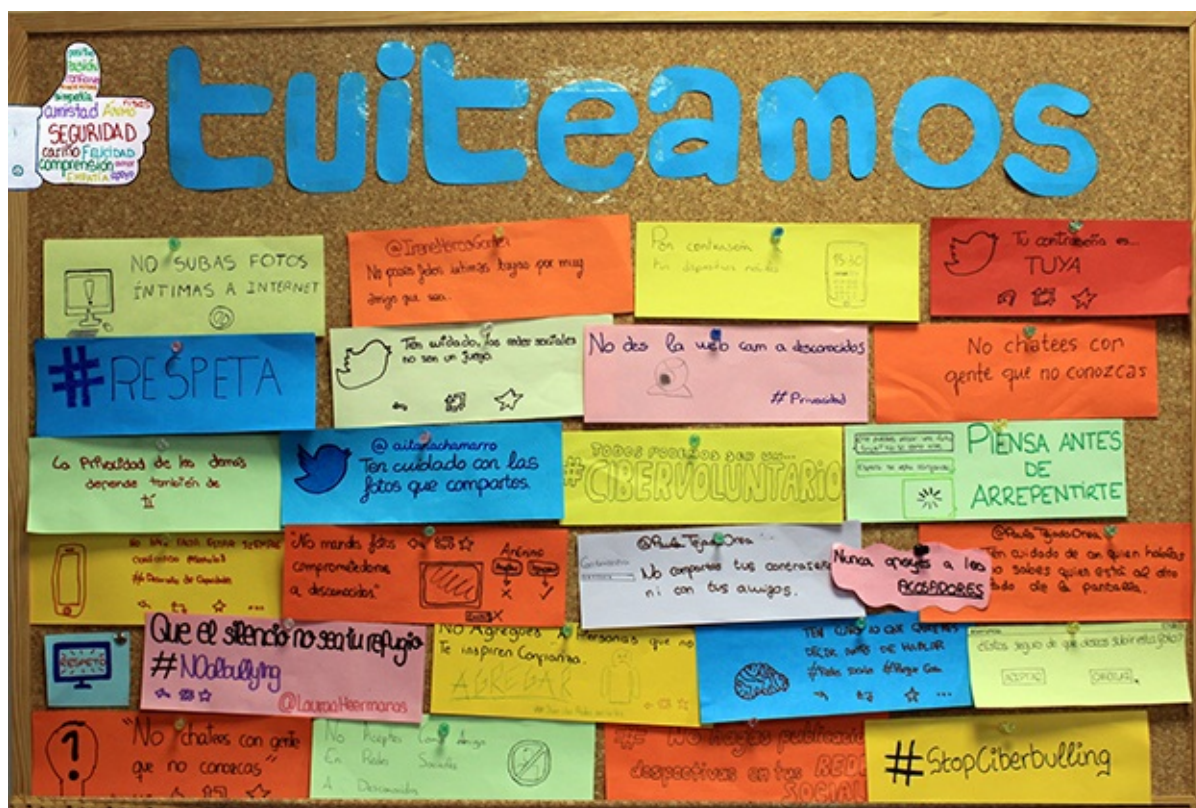 amistad ÁNIMO
SEGURIDAD
cariño FELICIDAD
comprensión amor
EMPATÍA apoyo
tuiteamos
NO SUBAS FOTOS
ÍNTIMAS A INTERNET
No pases fotos íntimas tuyas por muy
amigo que sea..
Pon contraseña a
tus dispositivos
15:30
Tu contraseña es...
TUYA
#RESPETA
Ten cuidado, las redes sociales
no son un juego.
No des la web cam a desconocidos
#Privacidad
No chatees con
gente que no conozcas
La Privacidad de los demás
depende también de
tí
@aitanachamarro
Ten cuidado con las
fotos que compartes.
TODOS PODEMOS SER UN...
#CIBERVOLUNTARIO
PIENSA ANTES
DE
ARREPENTIRTE
"No mandes fotos
comprometedoras
a desconocidos"
Anónimo
@Paula_TejadoOrea
No compartas tus contraseñas
ni con tus amigos.
Nunca apoyes a los
ACOSADORES
@Paula_TejadoOrea
Ten cuidado de con quien hablas
no sabes quien está al otro
lado de la pantalla.
RESPETO
Que el silencio no sea tu refugio
#NOalbullying
@LauraaHeermanas
No Agregues A Personas que no
Te inspiren Confianza.
AGREGAR
TEN CLARO LO QUE QUIERES
DECIR ANTES DE HABLAR
¿Estás seguro de que deseas subir esta foto?
ACEPTAR
CANCELAR
"No chatees con gente
que no conozcas"
No Aceptes Como Amigo
En Redes Sociales
A Desconocidos
# No hagas publicaciones
despectivas en tus REDES
SOCIAL
#StopCiberbulling